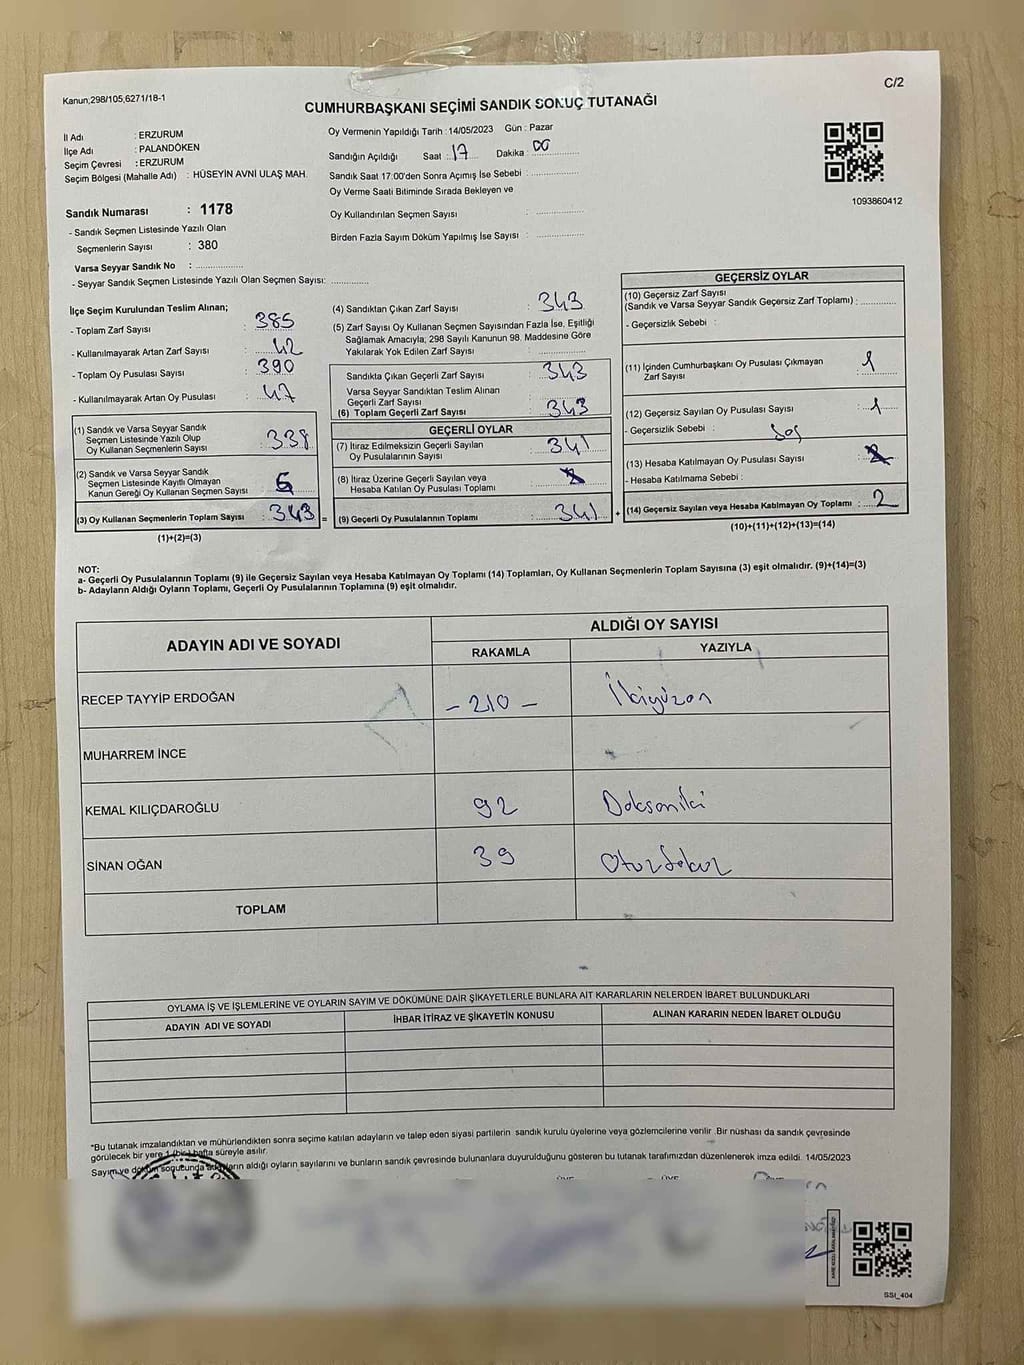 Kanun;298/105,6271/18-1
C/2
CUMHURBAŞKANI SEÇİMİ SANDIK SONUÇ TUTANAĞI
İl Adı : ERZURUM
İlçe Adı : PALANDÖKEN
Seçim Çevresi : ERZURUM
Seçim Bölgesi (Mahalle Adı) : HÜSEYİN AVNİ ULAŞ MAH.
Sandık Numarası : 1178
- Sandık Seçmen Listesinde Yazılı Olan
Seçmenlerin Sayısı : 380
Varsa Seyyar Sandık No : ..................
- Seyyar Sandık Seçmen Listesinde Yazılı Olan Seçmen Sayısı: ..............
Oy Vermenin Yapıldığı Tarih : 14/05/2023 Gün : Pazar
Sandığın Açıldığı Saat : 17 Dakika : 00
Sandık Saat 17:00'den Sonra Açımış İse Sebebi : ..................
Oy Verme Saati Bitiminde Sırada Bekleyen ve
Oy Kullandırılan Seçmen Sayısı : ..................
Birden Fazla Sayım Döküm Yapılmış İse Sayısı : ..................
1093860412
İlçe Seçim Kurulundan Teslim Alınan;
- Toplam Zarf Sayısı : 385
- Kullanılmayarak Artan Zarf Sayısı : 42
- Toplam Oy Pusulası Sayısı : 390
- Kullanılmayarak Artan Oy Pusulası : 47
(1) Sandık ve Varsa Seyyar Sandık
Seçmen Listesinde Yazılı Olup
Oy Kullanan Seçmenlerin Sayısı : 338
(2) Sandık ve Varsa Seyyar Sandık
Seçmen Listesinde Kayıtlı Olmayan
Kanun Gereği Oy Kullanan Seçmen Sayısı :
(3) Oy Kullanan Seçmenlerin Toplam Sayısı : 343 =
(1)+(2)=(3)
(4) Sandıktan Çıkan Zarf Sayısı : 343
(5) Zarf Sayısı Oy Kullanan Seçmen Sayısından Fazla İse, Eşitliği
Sağlamak Amacıyla, 298 Sayılı Kanunun 98. Maddesine Göre
Yakılarak Yok Edilen Zarf Sayısı : ..................
Sandıkta Çıkan Geçerli Zarf Sayısı : 343
Varsa Seyyar Sandıktan Teslim Alınan
Geçerli Zarf Sayısı : ..................
(6) Toplam Geçerli Zarf Sayısı : 343
GEÇERLİ OYLAR
(7) İtiraz Edilmeksizin Geçerli Sayılan
Oy Pusulalarının Sayısı : 341
(8) İtiraz Üzerine Geçerli Sayılan veya
Hesaba Katılan Oy Pusulası Toplamı :
(9) Geçerli Oy Pusulalarının Toplamı : 341 +
GEÇERSİZ OYLAR
(10) Geçersiz Zarf Sayısı
(Sandık ve Varsa Seyyar Sandık Geçersiz Zarf Toplamı) : ............
- Geçersizlik Sebebi :
(11) İçinden Cumhurbaşkanı Oy Pusulası Çıkmayan
Zarf Sayısı : 1
(12) Geçersiz Sayılan Oy Pusulası Sayısı : 1
- Geçersizlik Sebebi : Boş
(13) Hesaba Katılmayan Oy Pusulası Sayısı :
- Hesaba Katılmama Sebebi :
(14) Geçersiz Sayılan veya Hesaba Katılmayan Oy Toplamı : 2
(10)+(11)+(12)+(13)=(14)
NOT:
a- Geçerli Oy Pusulalarının Toplamı (9) ile Geçersiz Sayılan veya Hesaba Katılmayan Oy Toplamı (14) Toplamları, Oy Kullanan Seçmenlerin Toplam Sayısına (3) eşit olmalıdır. (9)+(14)=(3)
b- Adayların Aldığı Oyların Toplamı, Geçerli Oy Pusulalarının Toplamına (9) eşit olmalıdır.
ADAYIN ADI VE SOYADI
ALDIĞI OY SAYISI
RAKAMLA YAZIYLA
RECEP TAYYİP ERDOĞAN - 210 - İkiyüzon
MUHARREM İNCE
KEMAL KILIÇDAROĞLU 92 Doksaniki
SİNAN OĞAN 39 Otuzdokuz
TOPLAM
OYLAMA İŞ VE İŞLEMLERİNE VE OYLARIN SAYIM VE DÖKÜMÜNE DAİR ŞİKAYETLERLE BUNLARA AİT KARARLARIN NELERDEN İBARET BULUNDUKLARI
ADAYIN ADI VE SOYADI İHBAR İTİRAZ VE ŞİKAYETİN KONUSU ALINAN KARARIN NEDEN İBARET OLDUĞU
*Bu tutanak imzalandıktan ve mühürlendikten sonra seçime katılan adayların ve talep eden siyasi partilerin sandık kurulu üyelerine veya gözlemcilerine verilir .Bir nüshası da sandık çevresinde
görülecek bir yere 1 (bir) hafta süreyle asılır.
Sayım ve döküm sonucunda adayların aldığı oyların sayılarını ve bunların sandık çevresinde bulunanlara duyurulduğunu gösteren bu tutanak tarafımızdan düzenlenerek imza edildi. 14/05/2023
ÜYE ÜYE
SSI_404